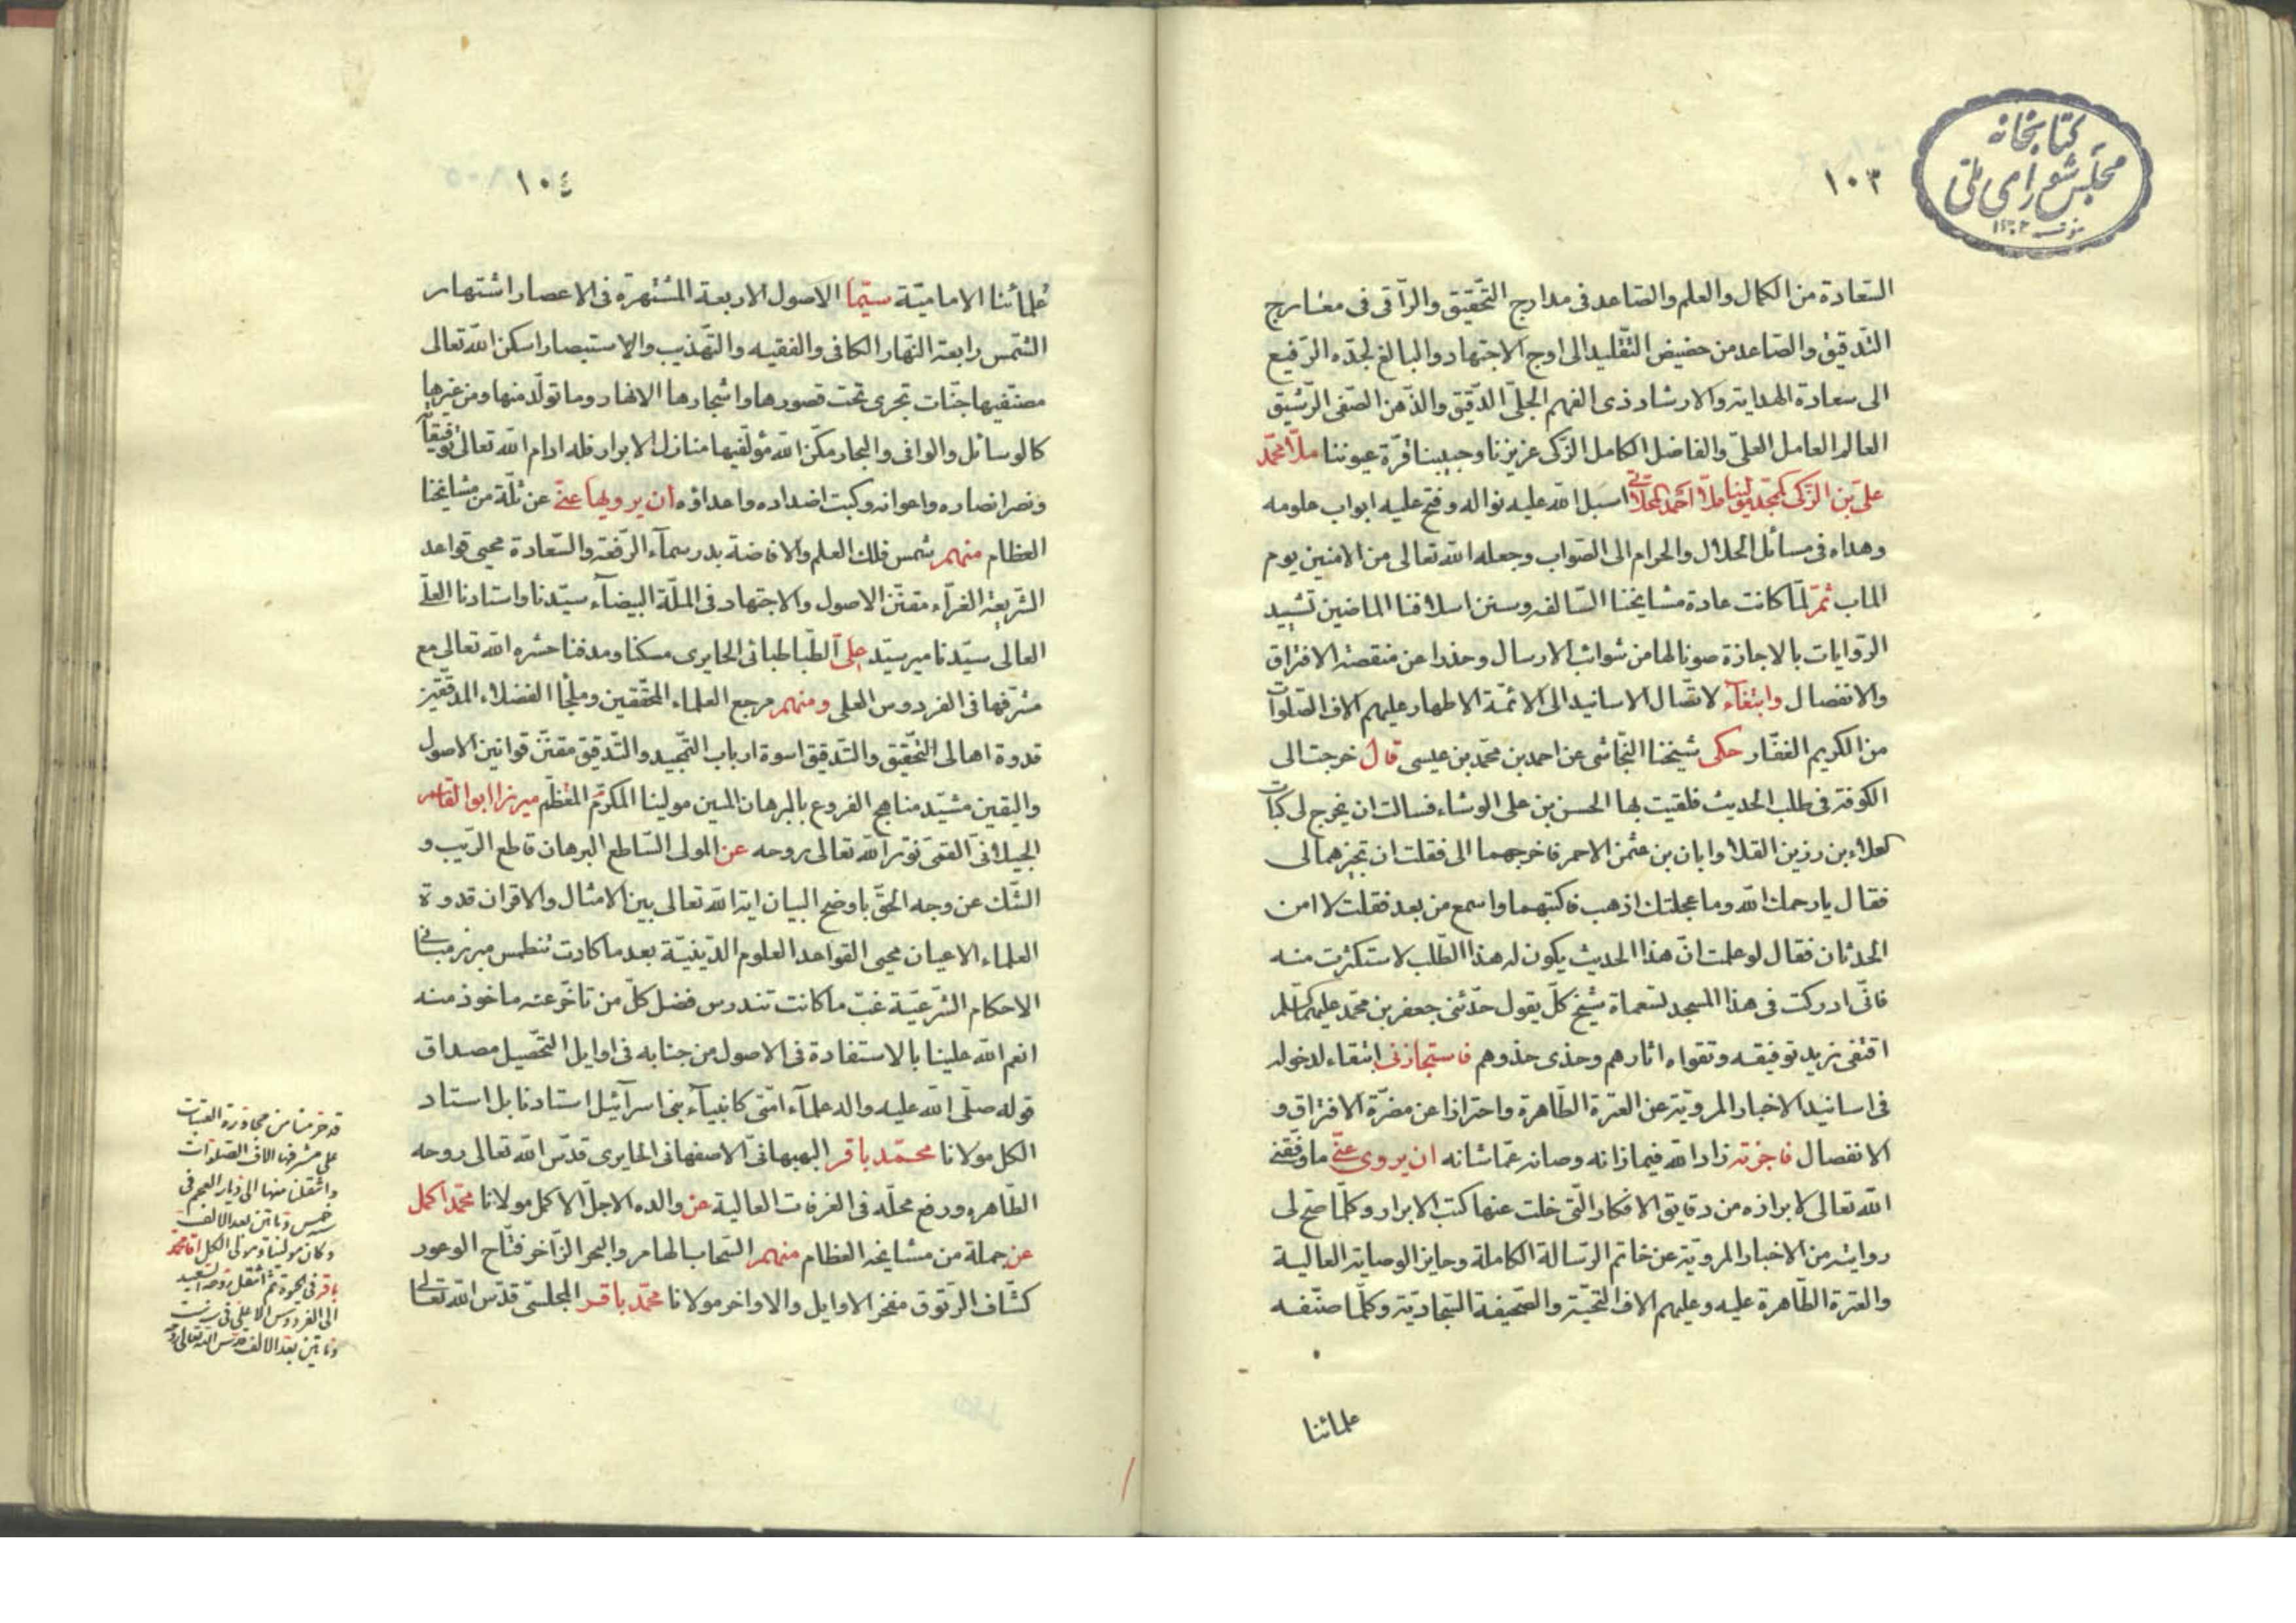 كتابخانه
مجلس شورای ملی
١٠٣
السّعادة من الكمال والعلم والصّاعد فى مدارج التّحقيق والرّاقى فى معارج
التّدقيق والصّاعد من حضيض التّقليد الى اوج الاجتهاد والبالغ لجدّه الرّفيع
الى سعادة الهداية والارشاد ذى الفهم الجلىّ الدّقيق والذّهن الصّفى الرّشيق
العالم العامل العلىّ والفاضل الكامل الزّكى عزيزنا وحبيبنا قرّة عيوننا ملّا محمّد
على بن الزّكى مولينا ملّا احمد المحلّاتى اسبل الله عليه نواله وفتح عليه ابواب علومه
وهداه فى مسائل الحلال والحرام الى الصّواب وجعله الله تعالى من الامنين يوم
الماب ثمّ لمّا كانت عادة مشايخنا السّالفه وسنن اسلافنا الماضين تشييد
الرّوايات بالاجازة صونا لها من شوائب الارسال وحذرا عن منقصة الافتراق
والانفصال وابتغآء لاتّصال الاسانيد الى الائمّة الاطهار عليهم الاف الصّلوات
من الكريم الغفّار حكى شيخنا النّجّاشى عن احمد بن محمّد بن عيسى قال خرجت الى
الكوفة فى طلب الحديث فلقيت بها الحسن بن على الوشاء فسالت ان يخرج لى كتاب
لعلاء بن رزين القلا وابان بن عثمن الاحمر فاخرجهما الى فقلت ان تجيزهما لى
فقال يا رحمك الله وما عجلتك اذهب فاكتبهما واسمع من بعد فقلت لا امن
الحدثان فقال لو علمت انّ هذا الحديث يكون له هذا الطّلب لاستكثرت منه
فانّى ادركت فى هذا المسجد تسعماة شيخ كلّ يقول حدّثنى جعفر بن محمّد عليهما السّلم
اقتفى بزيد توفيقه وتقواه اثارهم وحذى حذوهم فاستجازنى ابتغاء لدخوله
فى اسانيد الاخبار المرويّة عن العترة الطّاهرة واحترازا عن مضرّة الافتراق و
الانفصال فاجزته زاد الله فيما زانه وصانه عمّا شانه ان يروى عنّى ما وفّقنى
الله تعالى لابرازه من دقايق الافكار الّتى خلت عنها كتب الابرار وكلّما صحّ لى
روايته من الاخبار المرويّة عن خاتم الرّسالة الكاملة وحايز الوصاية العالية
والعترة الطّاهرة عليه وعليهم الاف التّحيّة والصّحيفة السّجاديّة وكلّما صنّفه
علمائنا
١٠٤
علمائنا الاماميّة سيّما الاصول الاربعة المشتهرة فى الاعصار اشتهار
الشّمس رابعة النّهار الكافى والفقيه والتّهذيب والاستبصار اسكن الله تعالى
مصنّفيها جنّات تجرى تحت قصورها واشجارها الانهار وما تولّد منها ومن غيرها
كالوسائل والوافى والبحار مكّن الله مؤلّفيها منازل الابرار فله ادام الله تعالى توفيقاته
ونصر انصاره واعوانه وكبت اضداده واعداؤه ان يرويها عنّى عن ثلّة من مشايخنا
العظام منهم شمس فلك العلم والافاضة بدر سمآء الرّفعة والسّعادة محيى قواعد
الشّريعة الغرّآء مقنّن الاصول والاجتهاد فى الملّة البيضآء سيّدنا واستادنا العلىّ
العالى سيّدنا مير سيّد على الطّباطبائى الحايرى مسكنا ومدفنا حشره الله تعالى مع
مشرّفها فى الفردوس العلى ومنهم مرجع العلماء المحقّقين وملجأ الفضلاء المدقّقين
قدوة اهالى التّحقيق والتّدقيق اسوة ارباب التّمجيد والتّدقيق مقنّن قوانين الاصول
واليقين مشيّد مناهج الفروع بالبرهان المبين مولينا المكرّم المعظّم ميرزا ابوالقاسم
الجيلانى القمّى نوّر الله تعالى روحه عن المولى السّاطع البرهان قاطع الرّيب و
الشّك عن وجه الحقّ باوضح البيان اية الله تعالى بين الامثال والاقران قدوة
العلماء الاعيان محيى القواعد العلوم الدّينيّة بعد ما كادت تنطمس مبرز مبانى
الاحكام الشّرعيّة غبّ ما كانت تندرس فضل كلّ من تاخّر عنه ماخوذ منه
انعم الله علينا بالاستفادة فى الاصول من جنابه فى اوايل التّحصيل مصداق
قوله صلّى الله عليه واله علمآء امّتى كانبيآء بنى اسرآئيل استادنا بل استاد
الكل مولانا محمّد باقر البهبهانىّ الاصفهانى الحايرى قدّس الله تعالى روحه
الطّاهره ورفع محلّه فى الغرفات العالية عن والده الاجلّ الاكمل مولانا محمّد اكمل
عن جملة من مشايخه العظام منهم السّحاب الهامر والبحر الزّاخر فتّاح الوعور
كشّاف الرتوق مفخر الاوايل والاواخر مولانا محمّد باقر المجلسىّ قدّس الله تعالى
قد خرمنا من مجاورة العتبات
على مشرفها الاف الصلوات
وانتقلنا منها الى ديار العجم فى
سنه خمس ومأتين بعد الالف
وكان مولينا ومولى الكل اقا محمد
باقر فى الحيوة ثم انتقل روحه السعيد
الى الفردوس الاعلى فى ست
ومأتين بعد الالف قدس الله تعالى روحه